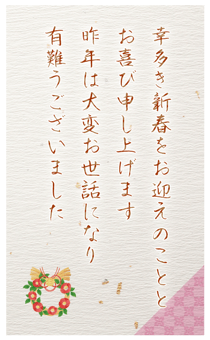 幸多き新春をお迎えのことと
お喜び申し上げます
昨年は大変お世話になり
有難うございました